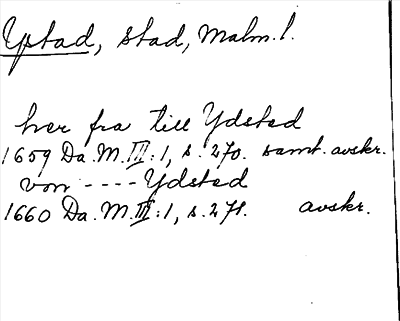 Ystad, stad, Malm. l.
her fra till Ydsted
1659 Da. M. III:1, s. 270. samt. avskr.
von ---- Ydsted
1660 Da. M. III:1, s. 271. avskr.